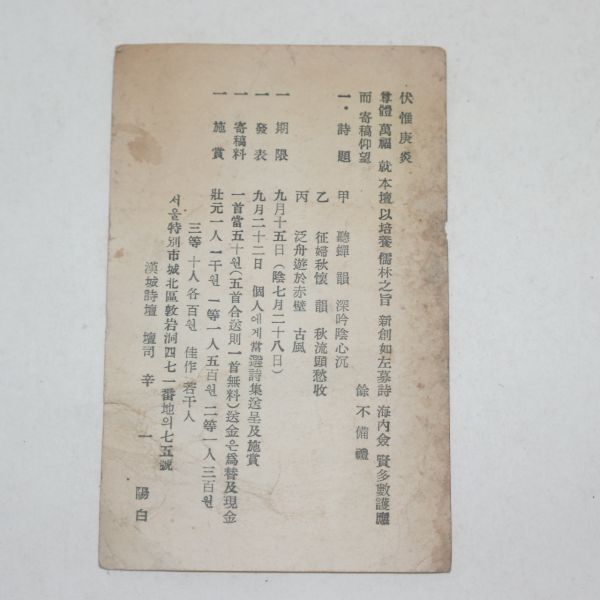 伏惟庚炎
尊體 萬福 就 本壇以培養 儒林之旨 新創如左募詩 海內僉 賢多數護應
而 寄稿仰望 餘 不備禮
一. 詩題 甲 聽蟬 韻 深吟陰心沉
乙 征婦秋懷 韻 秋流頭愁收
丙 泛舟遊於赤壁 古風
一 期限 九月十五日(陰七月二十八日)
一 發表 九月二十二日 個人에게當選詩集送呈及施賞
一 寄稿料 一首當五十원(五首合送則一首無料)送金은爲替及現金
一 施賞 壯元一人一千원 一等一人五百원 二等一人三百원
三等 十人各百원 佳作 若干人
서울特別市城北區敦岩洞四七一番地의七五號
漢城詩壇 壇司 辛 一陽 白